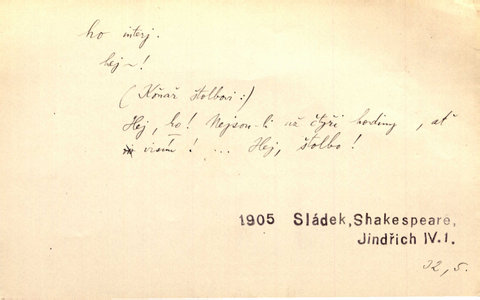 ho interj.
hej ~!
(Kõnař štolbovi:)
Hej, ho! Nejson-li už čtyři hodiny, ať
visím! ... Hej, štolbo!
1905 Sládek, Shakespeare,
Jindřich IV.1.
32, 5.